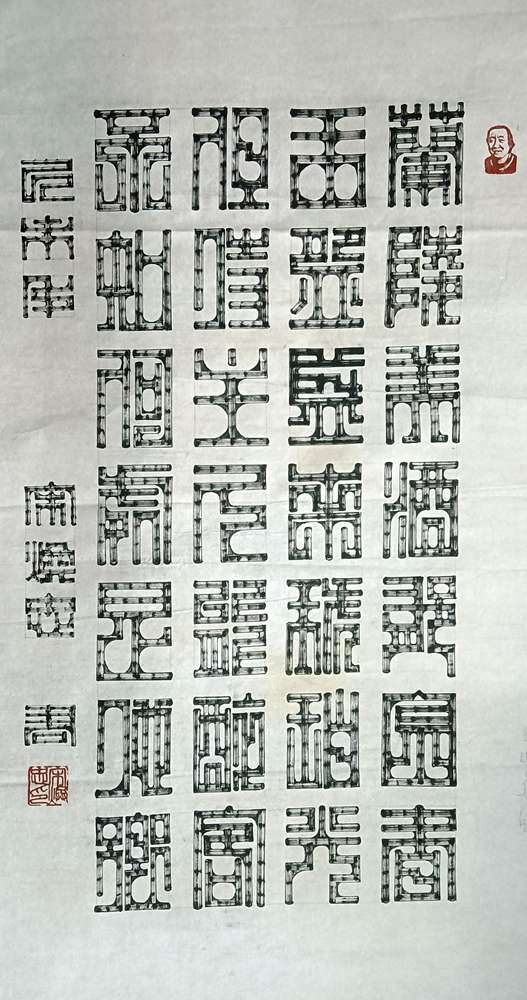 蘭陵美酒鬱金香
玉碗盛來琥珀光
但使主人能醉客
不知何處是他鄉
書